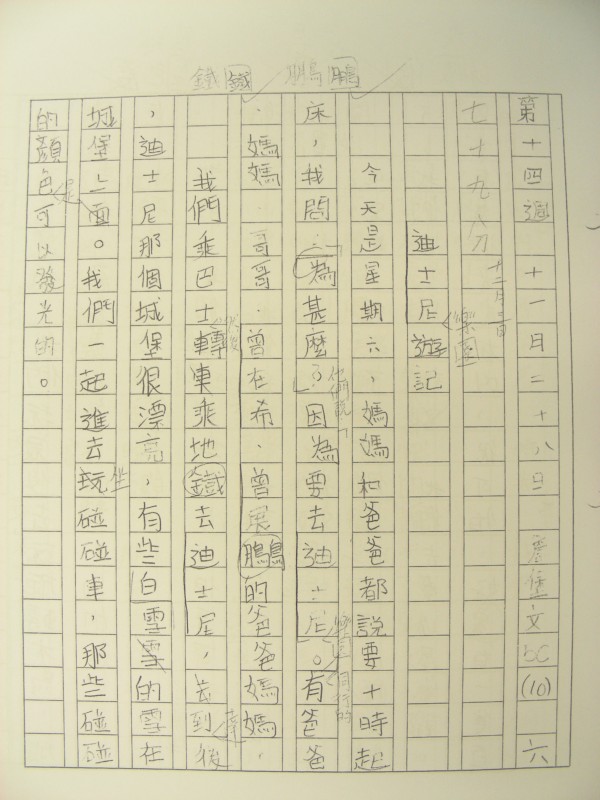 鐵鐵 鵬鵬
第十四週 十一月二十八日 詹堡文 5C (10) 六
七十九八刀 十二月二日
迪士尼樂園遊記
今天是星期六，媽媽和爸爸都說要十時起
床，我問：「為甚麼？」他們說：「因為要去迪士尼樂園」。同行的有爸爸
、媽媽、哥哥、曾在希、曾展鵬的爸爸媽媽、
我們乘巴士然後轉車乘地鐵去迪士尼，去到達後
，迪士尼那個城堡很漂亮，有些白雪雪的雪在
城堡上面。我們一起進去玩坐碰碰車，那些碰碰
的顏色是可以發光的。